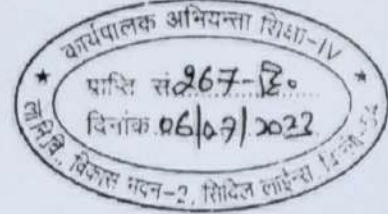 कार्यपालक अभियन्ता शिक्षा-IV
प्राप्ति सं 267-हि०
दिनांक 06/07/2022
लोनिवि., विकास भवन-2, सिविल लाईन्स दिल्ली-54